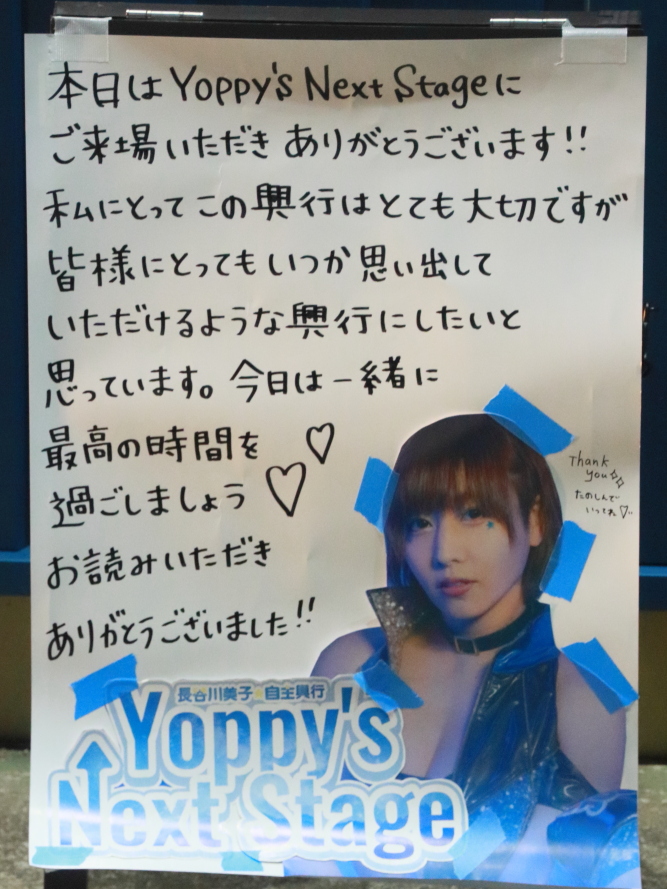 本日は Yoppy's Next Stageに
ご来場いただき ありがとうございます!!
私にとって この興行は とても 大切ですが
皆様にとっても いつか 思い出して
いただけるような興行にしたいと
思っています。今日は一緒に
最高の時間を
過ごしましょう♡♡
お読みいただき
ありがとうございました!!
Thank
you
たのしんで
いってね♡
長谷川美子★自主興行
Yoppy's
Next Stage